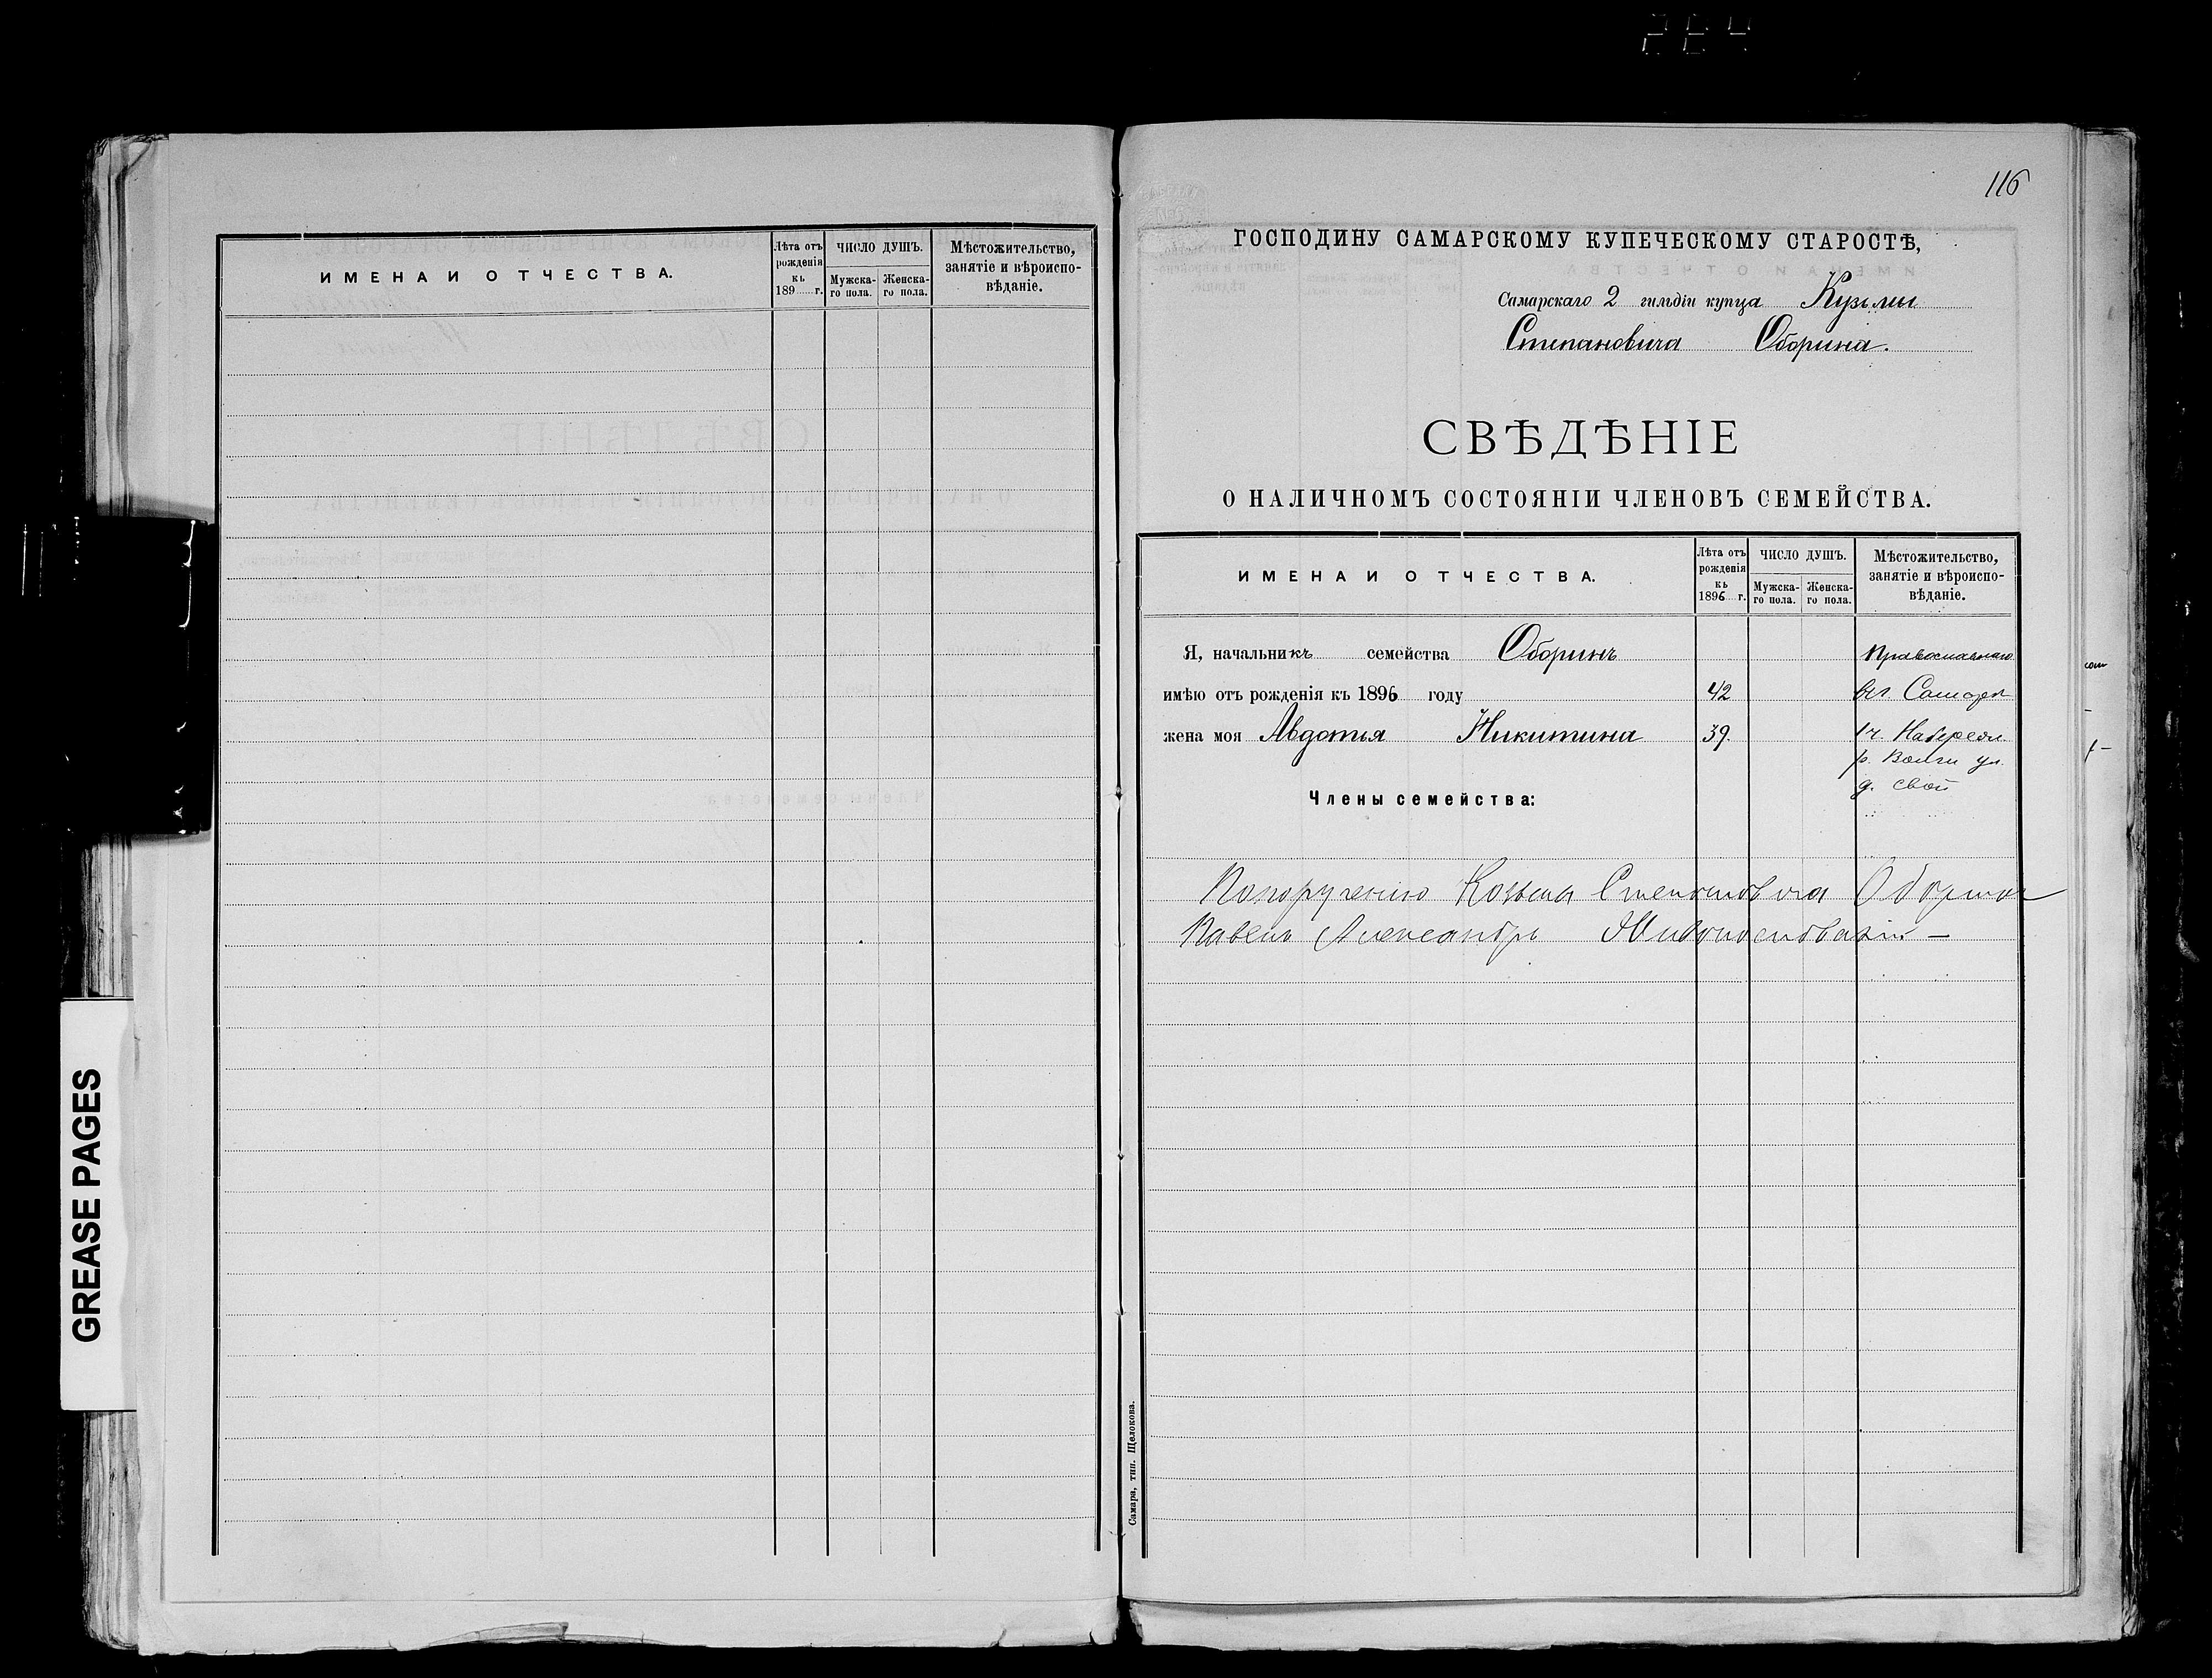 264
116
ИМЕНА И ОТЧЕСТВА.
Лѣта отъ рожденія къ 189 г.
ЧИСЛО ДУШЪ.
Мужска-го пола.
Женска-го пола.
Мѣстожительство, занятіе и вѣроиспо-вѣданіе.
ГОСПОДИНУ САМАРСКОМУ КУПЕЧЕСКОМУ СТАРОСТѢ,
Самарскаго 2 гильдіи купца Кузьмы
Степановича Оборина.
СВѢДѢНІЕ
О НАЛИЧНОМЪ СОСТОЯНІИ ЧЛЕНОВЪ СЕМЕЙСТВА.
ИМЕНА И ОТЧЕСТВА.
Лѣта отъ рожденія къ 1896 г.
ЧИСЛО ДУШЪ.
Мужска-го пола.
Женска-го пола.
Мѣстожительство, занятіе и вѣроиспо-вѣданіе.
Я, начальникъ семейства Оборинъ Православнаго
имѣю отъ рожденія къ 1896 году 42
жена моя Авдотья Никитина 39. 1 ч. Набереж.
р. Волги ул.
д. свой
Члены семейства:
По порученію Козьма Степановича Оборина
Павелъ Александръ
Самара, тип. Щелокова.
GREASE PAGES